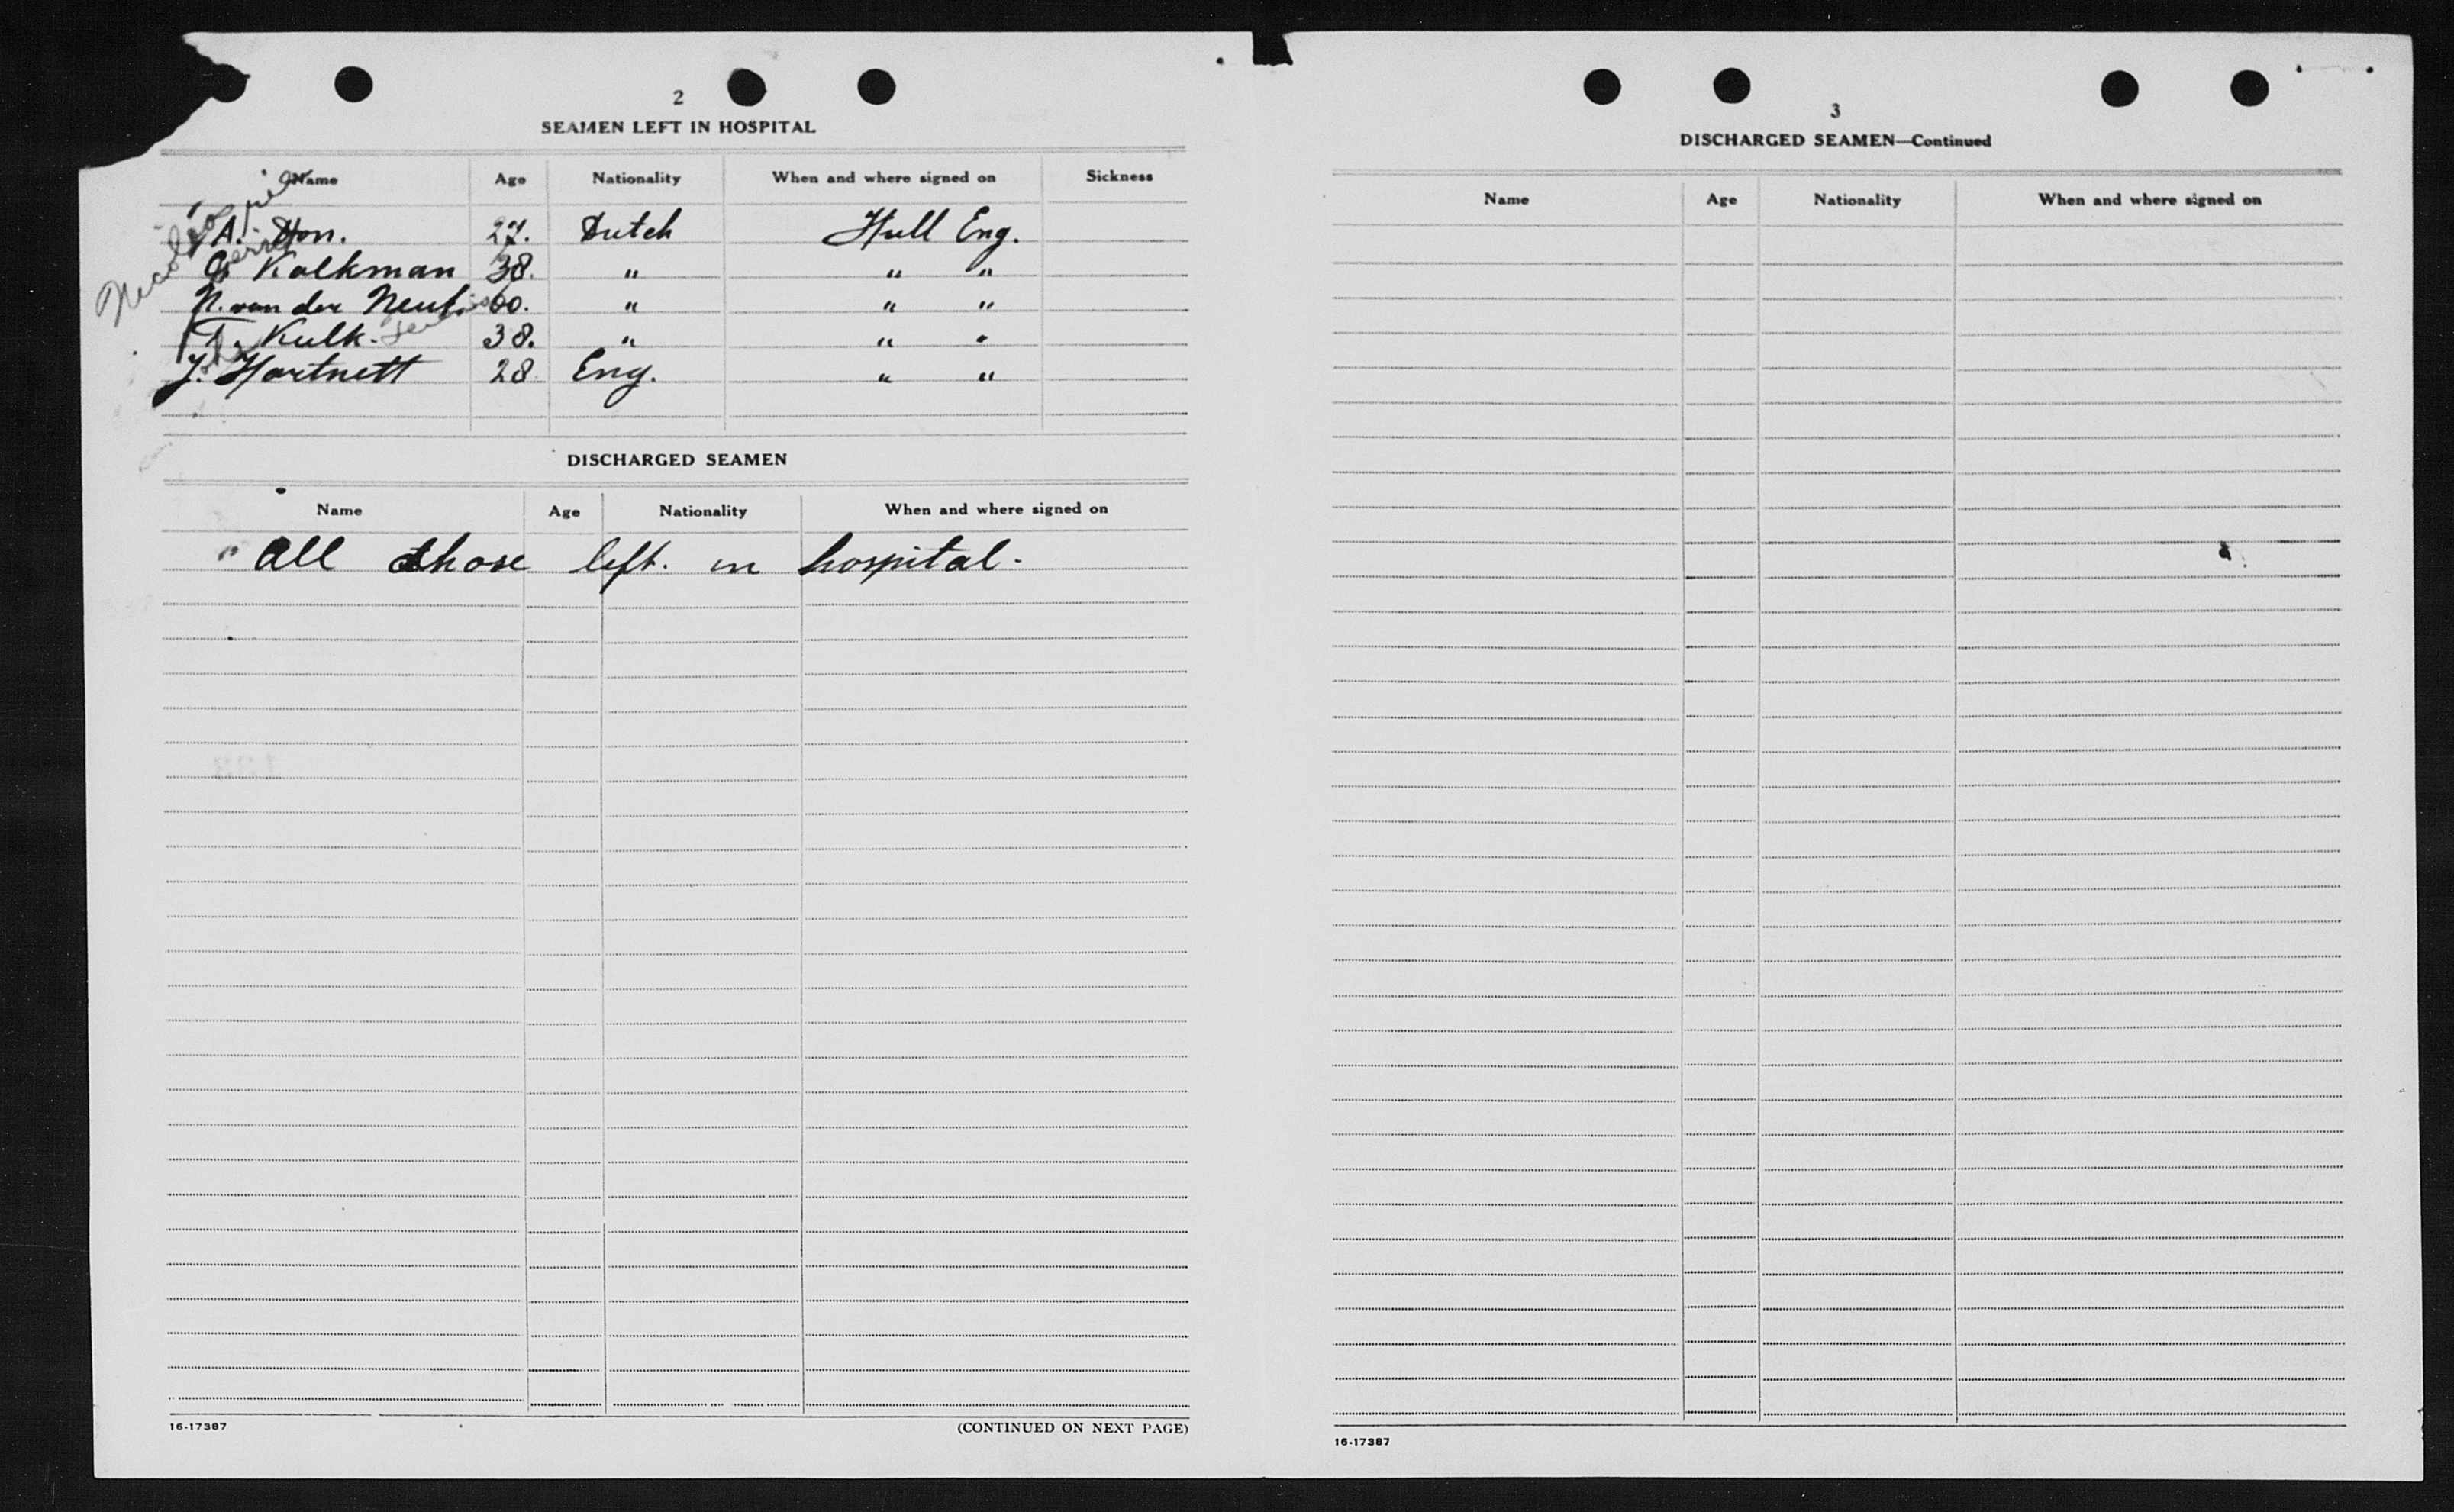 2
SEAMEN LEFT IN HOSPITAL
Name Age Nationality When and where signed on Sickness
A. Hon. 27. Dutch Hull Eng.
Kalkman 38. " " "
N. van der 60. " " "
T. Kulk. 38. " " "
J. Hartnett 28 Eng. " "
DISCHARGED SEAMEN
Name Age Nationality When and where signed on
All those left in hospital.
16-17387 (CONTINUED ON NEXT PAGE)
3
DISCHARGED SEAMEN—Continued
Name Age Nationality When and where signed on
16-17387